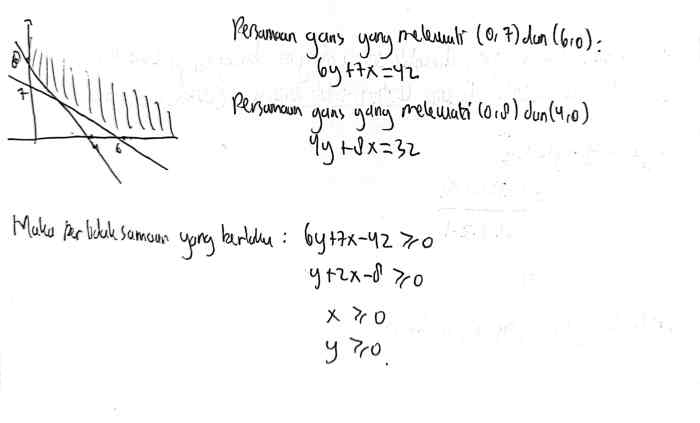 Persamaan garis yang melewati (0,7) dan (6,0) :
6y+7x=42
Persamaan garis yang melewati (0,8) dan (4,0)
4y+8x=32
8
7
4 6
Maka pertidaksamaan yang berlaku : 6y+7x-42 ⩾0
y+2x-8 ⩾0
x ⩾0
y ⩾0.